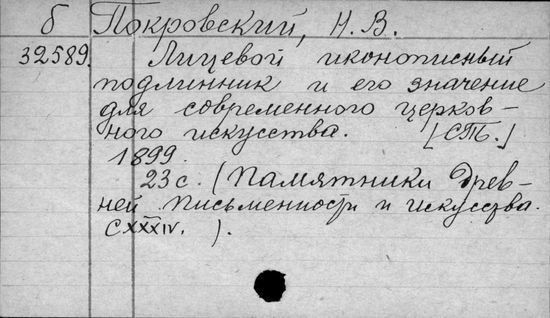 б Покровский, Н. В.
32589. Лицевой иконописный
подлинник и его значение
для современного церков-
ного искусства. [СПб.]
1899.
23 с. (Памятники древ-
ней письменности и искусства.
CXXXIV. ).